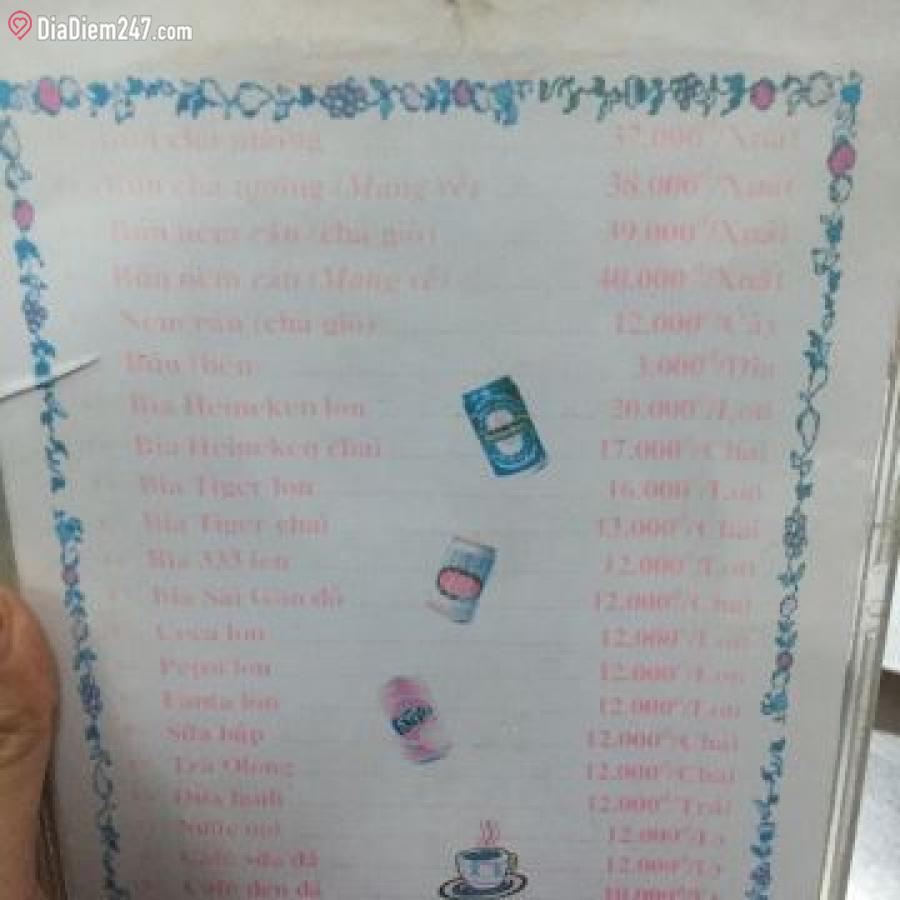 DiaDiem247.com
Bún chả nướng 37.000đ/Xuất
Bún chả nướng (Mang về) 38.000đ/Xuất
Bún nem rán (chả giò) 39.000đ/Xuất
Bún nem rán (Mang về) 40.000đ/Xuất
Nem rán (chả giò) 12.000đ/Cây
Bún thêm 3.000đ/Dĩa
Bia Heineken lon 20.000đ/Lon
Bia Heineken chai 17.000đ/Chai
Bia Tiger lon 16.000đ/Lon
Bia Tiger chai 13.000đ/Chai
Bia 333 lon 12.000đ/Lon
Bia Sài Gòn đỏ 12.000đ/Chai
Coca lon 12.000đ/Lon
Pepsi lon 12.000đ/Lon
Fanta lon 12.000đ/Lon
Sữa bắp 12.000đ/Chai
Trà Olong 12.000đ/Chai
Dừa lạnh 12.000đ/Trái
12.000đ/Ly
Café sữa đá 12.000đ/Ly
Café đen đá 10.000đ/Ly